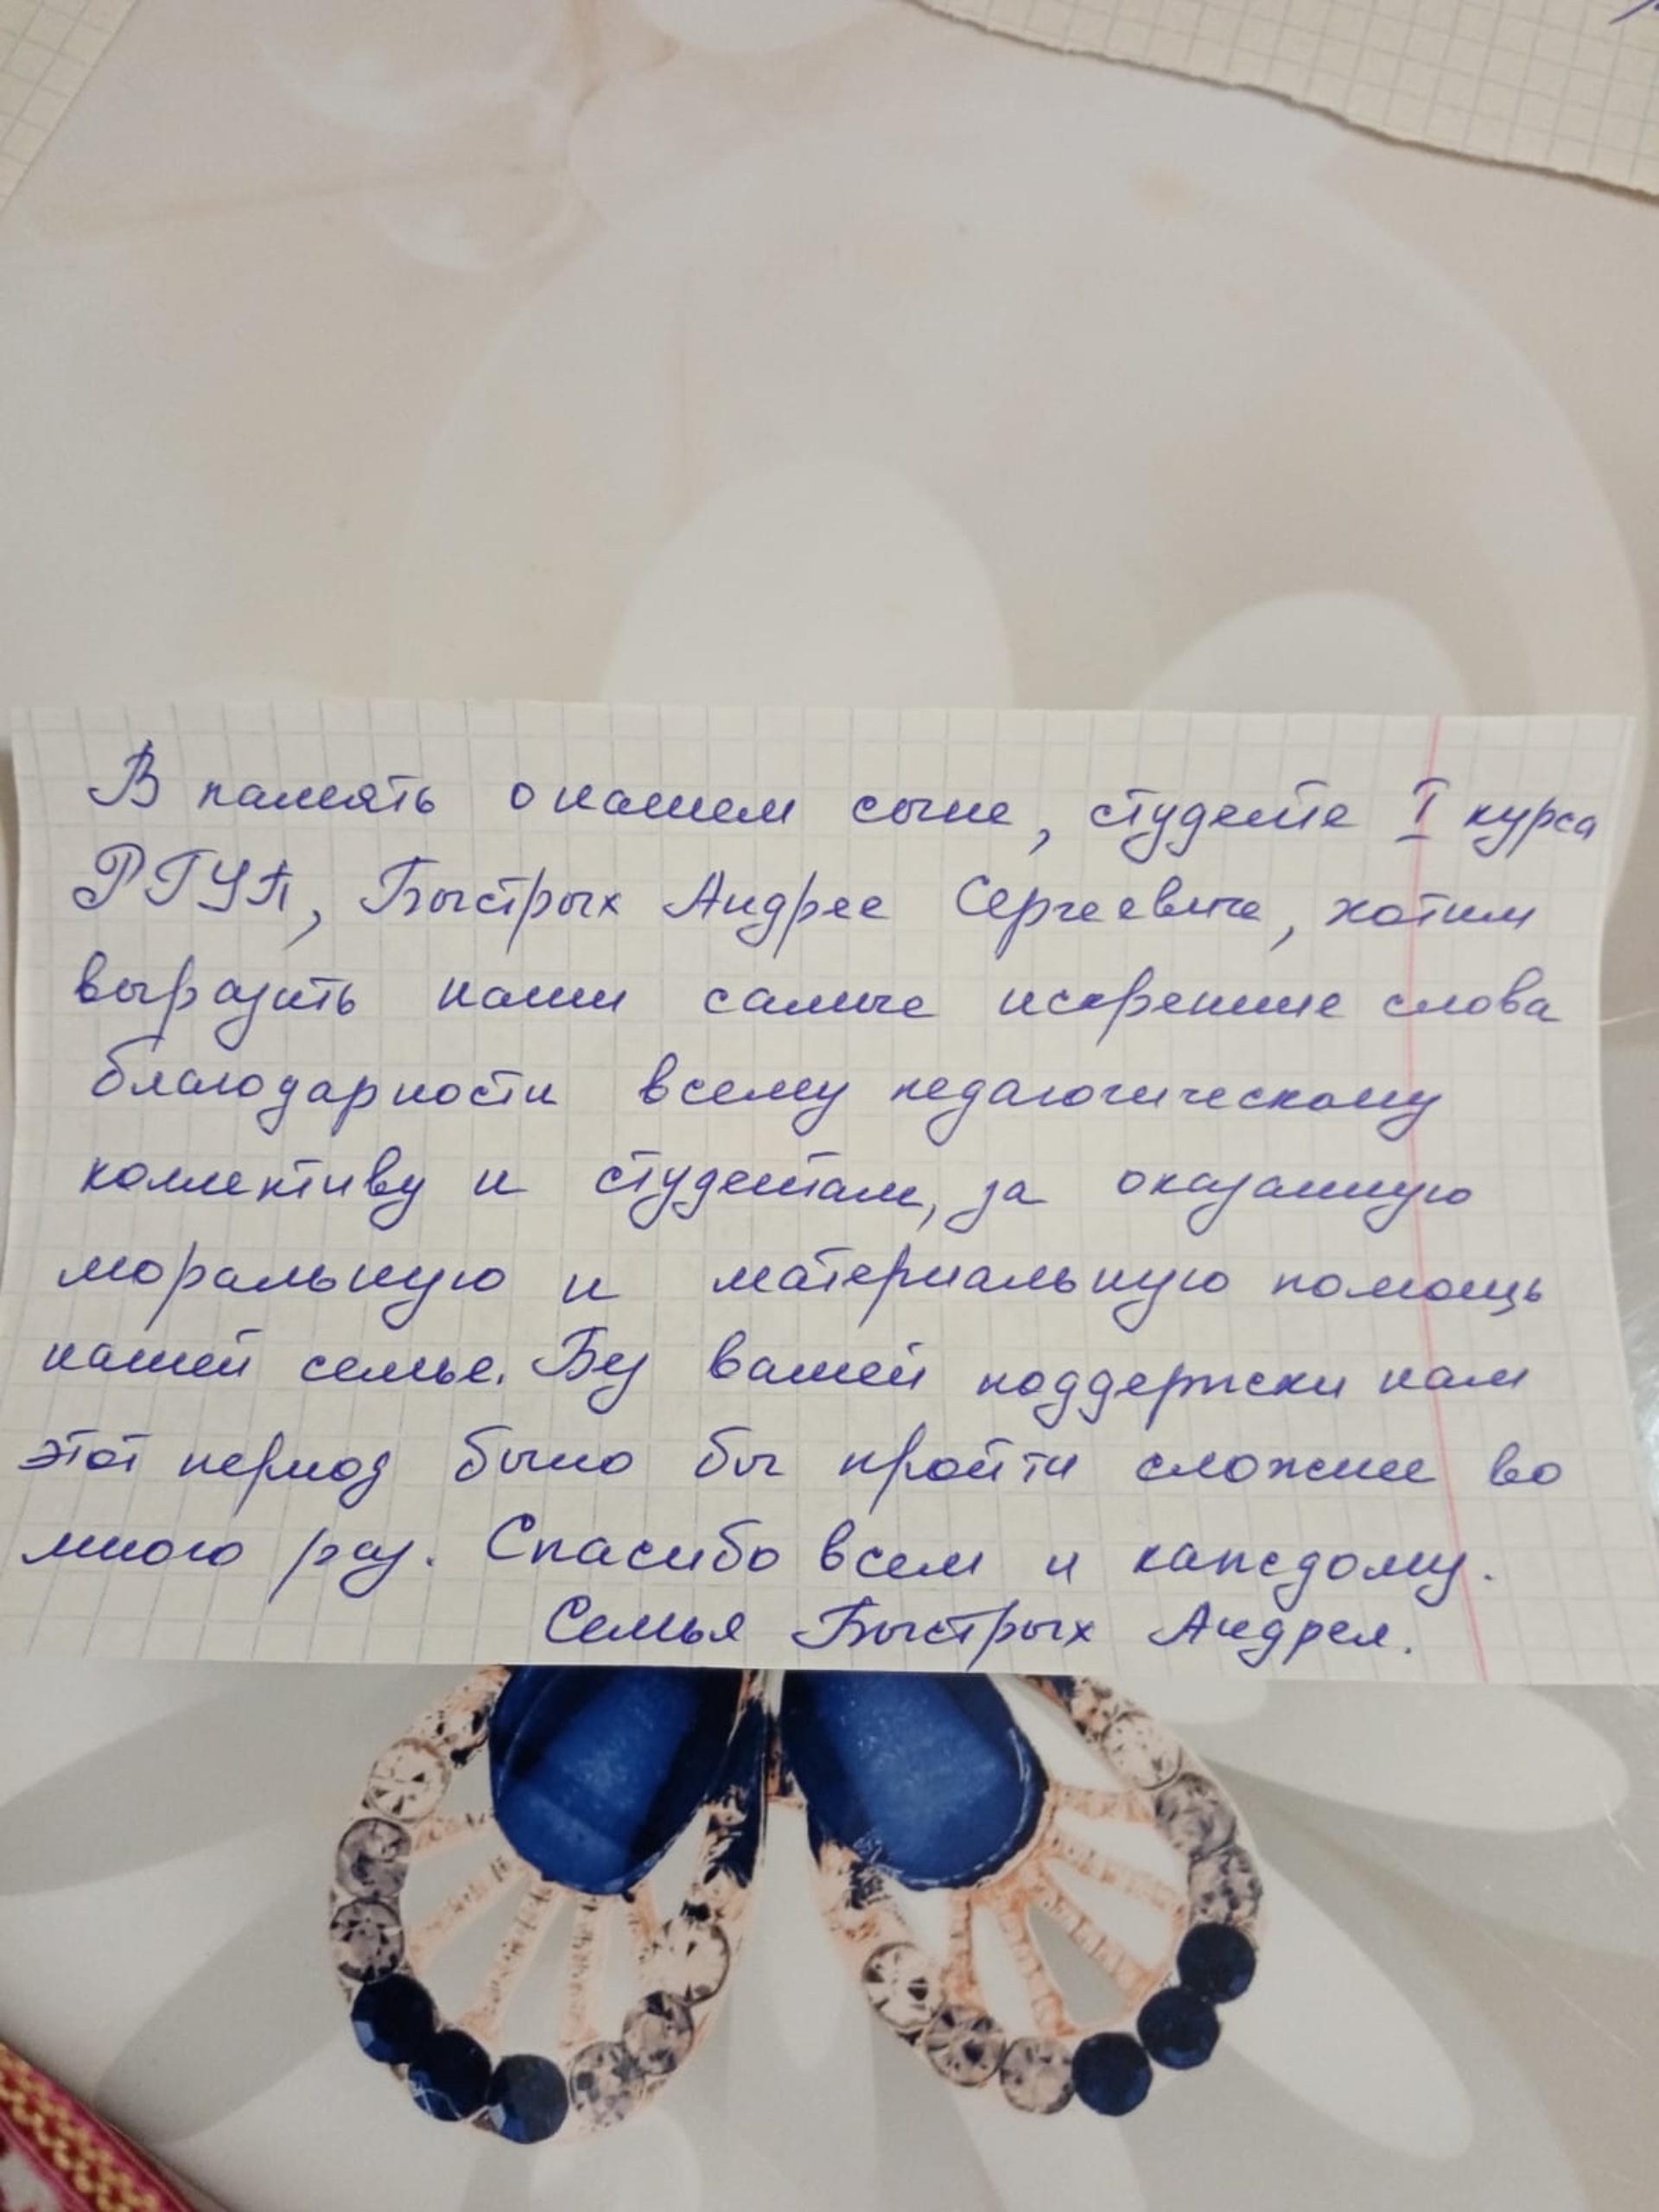 В память о нашем сыне, студенте I курса
РГУП, Быстрых Андрее Сергеевиче, хотим
выразить наши самые искренние слова
благодарности всему педагогическому
коллективу и студентам, за оказанную
моральную и материальную помощь
нашей семье. Без вашей поддержки нам
этот период было бы пройти сложнее во
много раз. Спасибо всем и каждому.
Семья Быстрых Андрея.